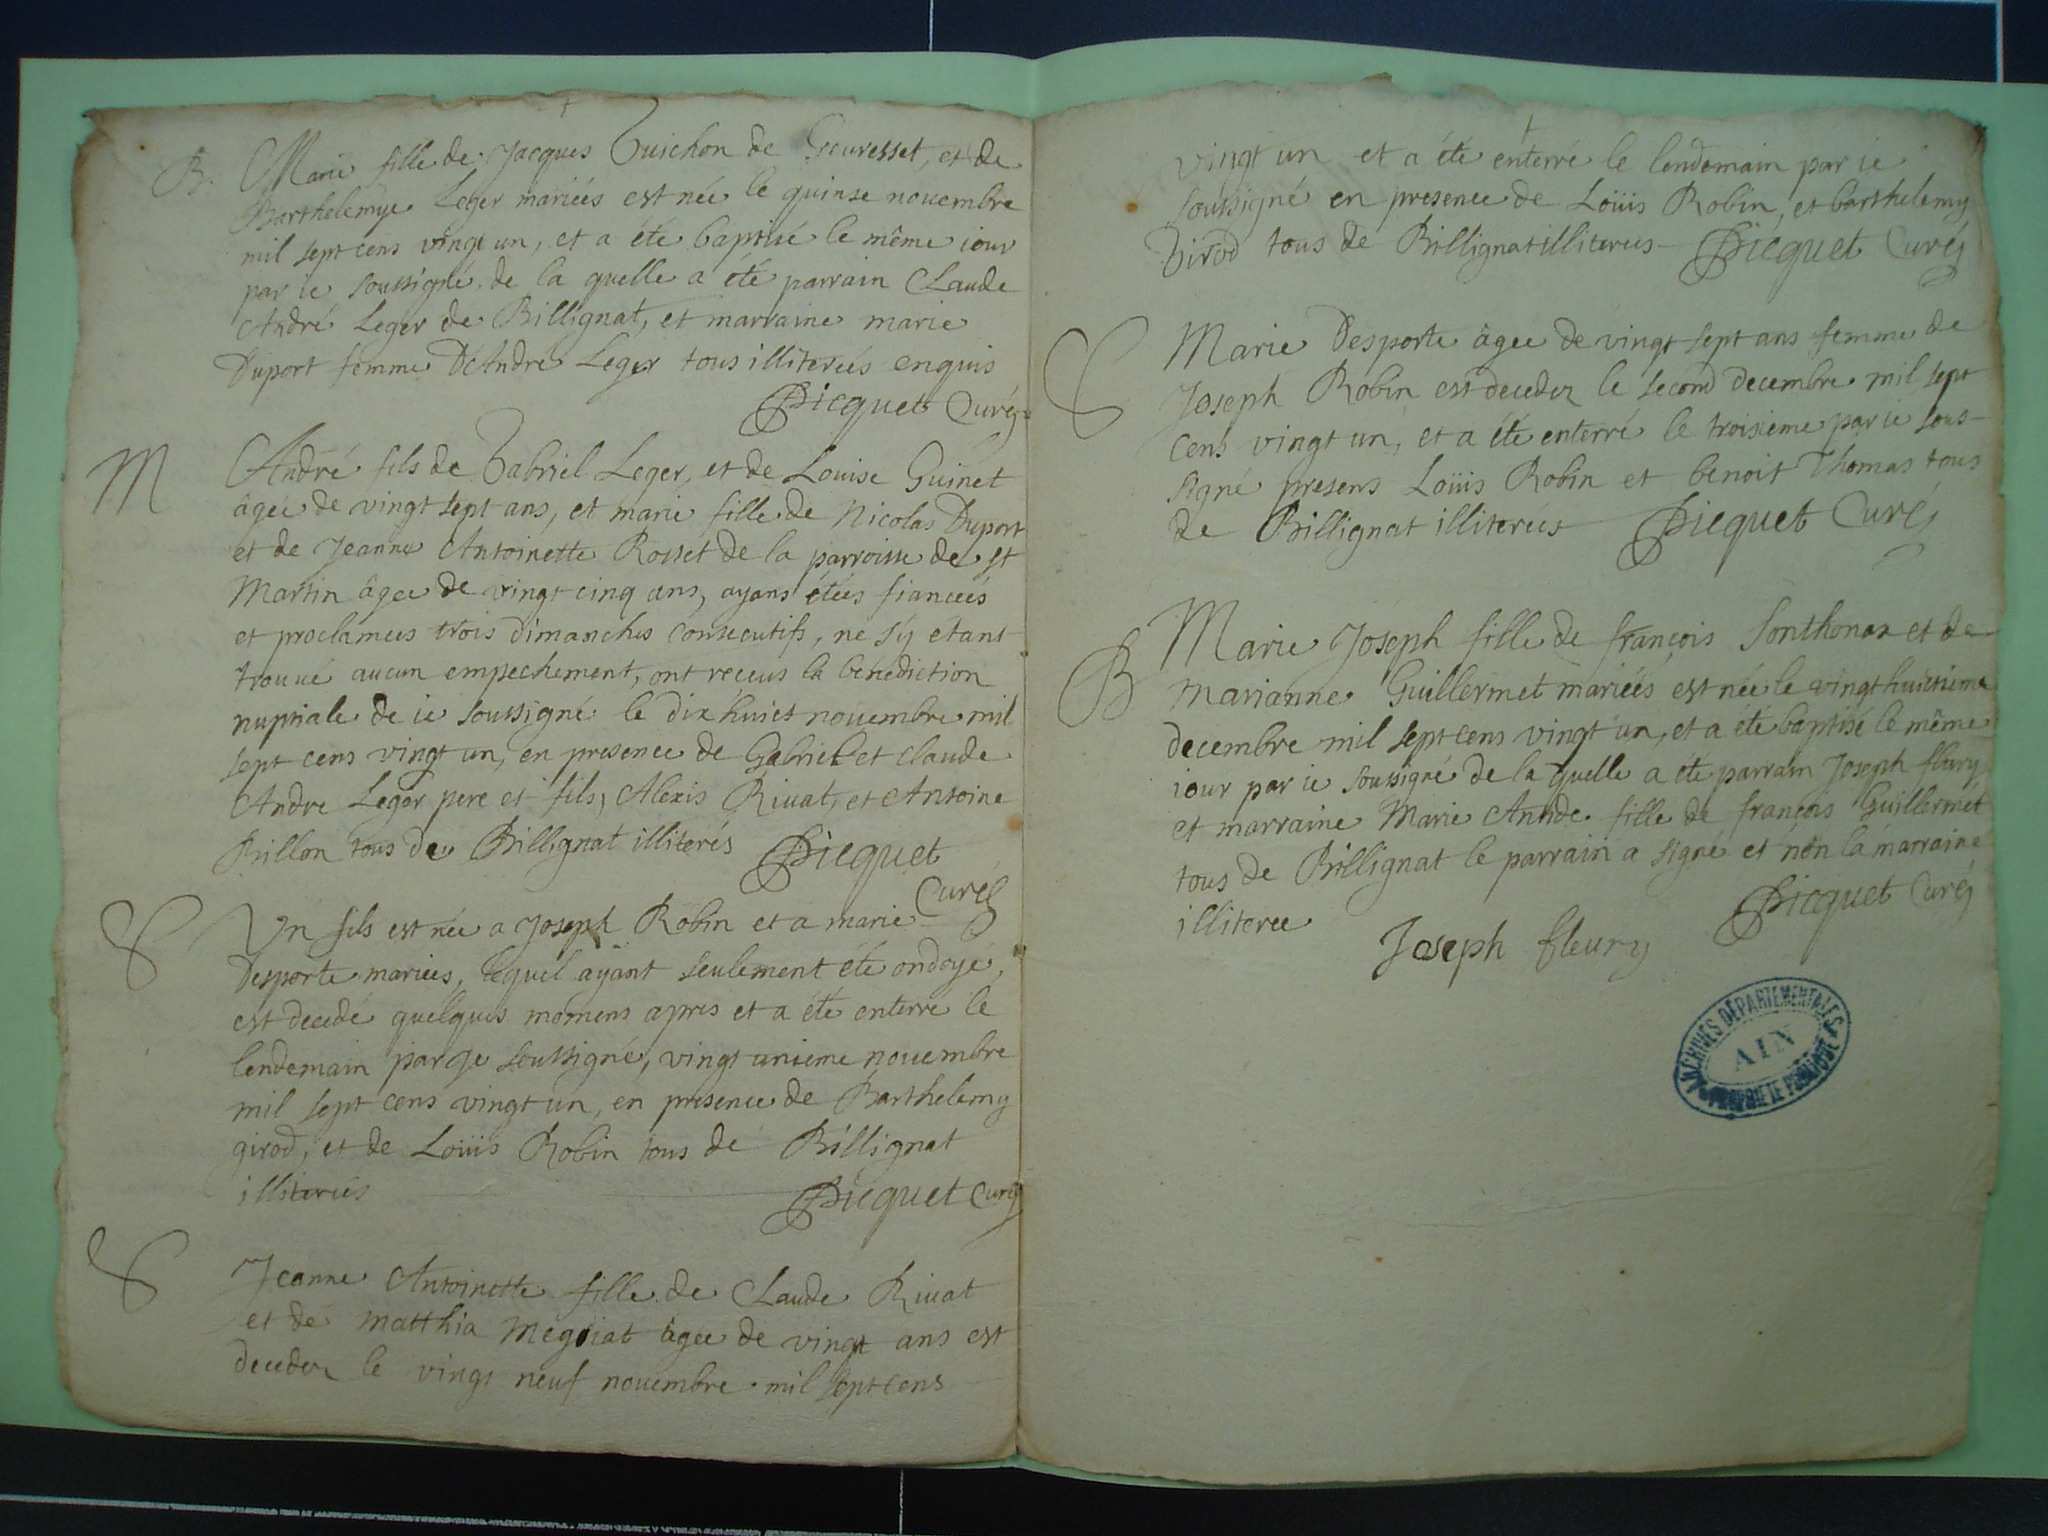 B. Marie fille de Jacques Guichon de Geuresset, et de
Barthelemye Leger mariées est née le quinse nouembre
mil sept cens vingt un, et a été baptisé le même iour
par ie soussigné, de la quelle a été parrain Claude
André Leger de Billignat, et marraine marie
Duport femme D'André Leger tous illiterées enquis
Picquet Curé
M André fils de Gabriel Leger, et de Louise Guinet
âgée de vingt sept ans, et marie fille de Nicolas Duport
et de Jeanne Antoinette Rosset de la parroisse de st
Martin âgée de vingt cinq ans, ayans étées fiancées
et proclamées trois dimanches consecutifs, ne s'y etant
trouué aucun empechement, ont receus la benediction
nuptiale de ie soussigné le dix huict nouembre mil
sept cens vingt un, en presence de Gabriel et claude
Andre Leger pere et fils, Alexis Riuat, et Antoine
Billon tous de Billignat illiterés Picquet
Curé
S Un fils est née a Joseph Robin et a marie
Desporte mariées, lequel ayant seulement été ondoyé,
est decedé quelques momens apres et a été enterré le
lendemain par ie soussigné, vingt unieme nouembre
mil sept cens vingt un, en presence de Barthelemy
girod, et de Loüis Robin tous de Billignat
illiterées Picquet Curé
S Jeanne Antoinette fille de Claude Riuat
et de matthia Mégoiat âgée de vingt ans est
decedez le vingt neuf nouembre mil sept cens
vingt un et a été enterré le lendemain par ie
soussigné en presence de Loüis Robin, et barthelemy
Girod tous de Billignat illiterées Picquet Curé
S Marie Desporte âgee de vingt sept ans femme de
Joseph Robin est decedez le second decembre mil sept
cens vingt un, et a été enterré le troisieme par ie sous-
signé presens Loüis Robin et benoit Thomas tous
de Billignat illiterées Picquet Curé
B Marie Joseph fille de françois Sonthonax et de
Marianne Guillermet mariées est née le vingt huictieme
decembre mil sept cens vingt un, et a été baptisé le même
iour par ie soussigné de la quelle a été parrain Joseph fleury
et marraine Marie Anide fille de françois Guillermet
tous de Billignat le parrain a signé et non la marraine
illiteree Picquet Curé
Joseph fleury
ARCHIVES DÉPARTEMENTALES
AIN
PROPRIÉTÉ PUBLIQUE